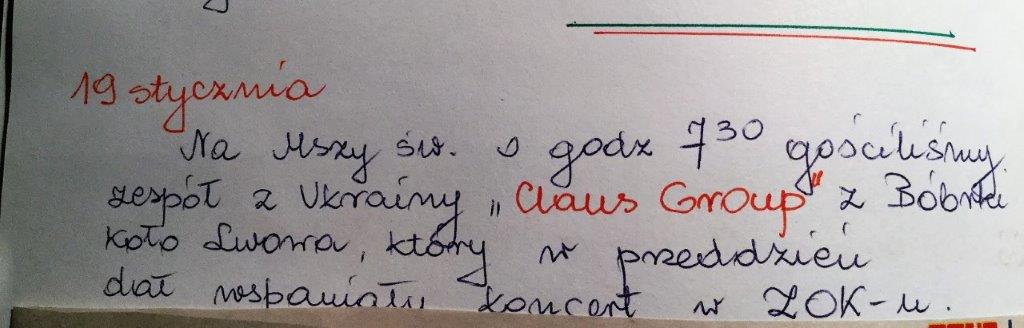 19 stycznia
Na Mszy św. o godz 7³⁰ gościliśmy
zespół z Ukrainy „Claus Group" z Bóbrki
koło Lwowa, który w przeddzień
dał wspaniały koncert w ZOK-u.